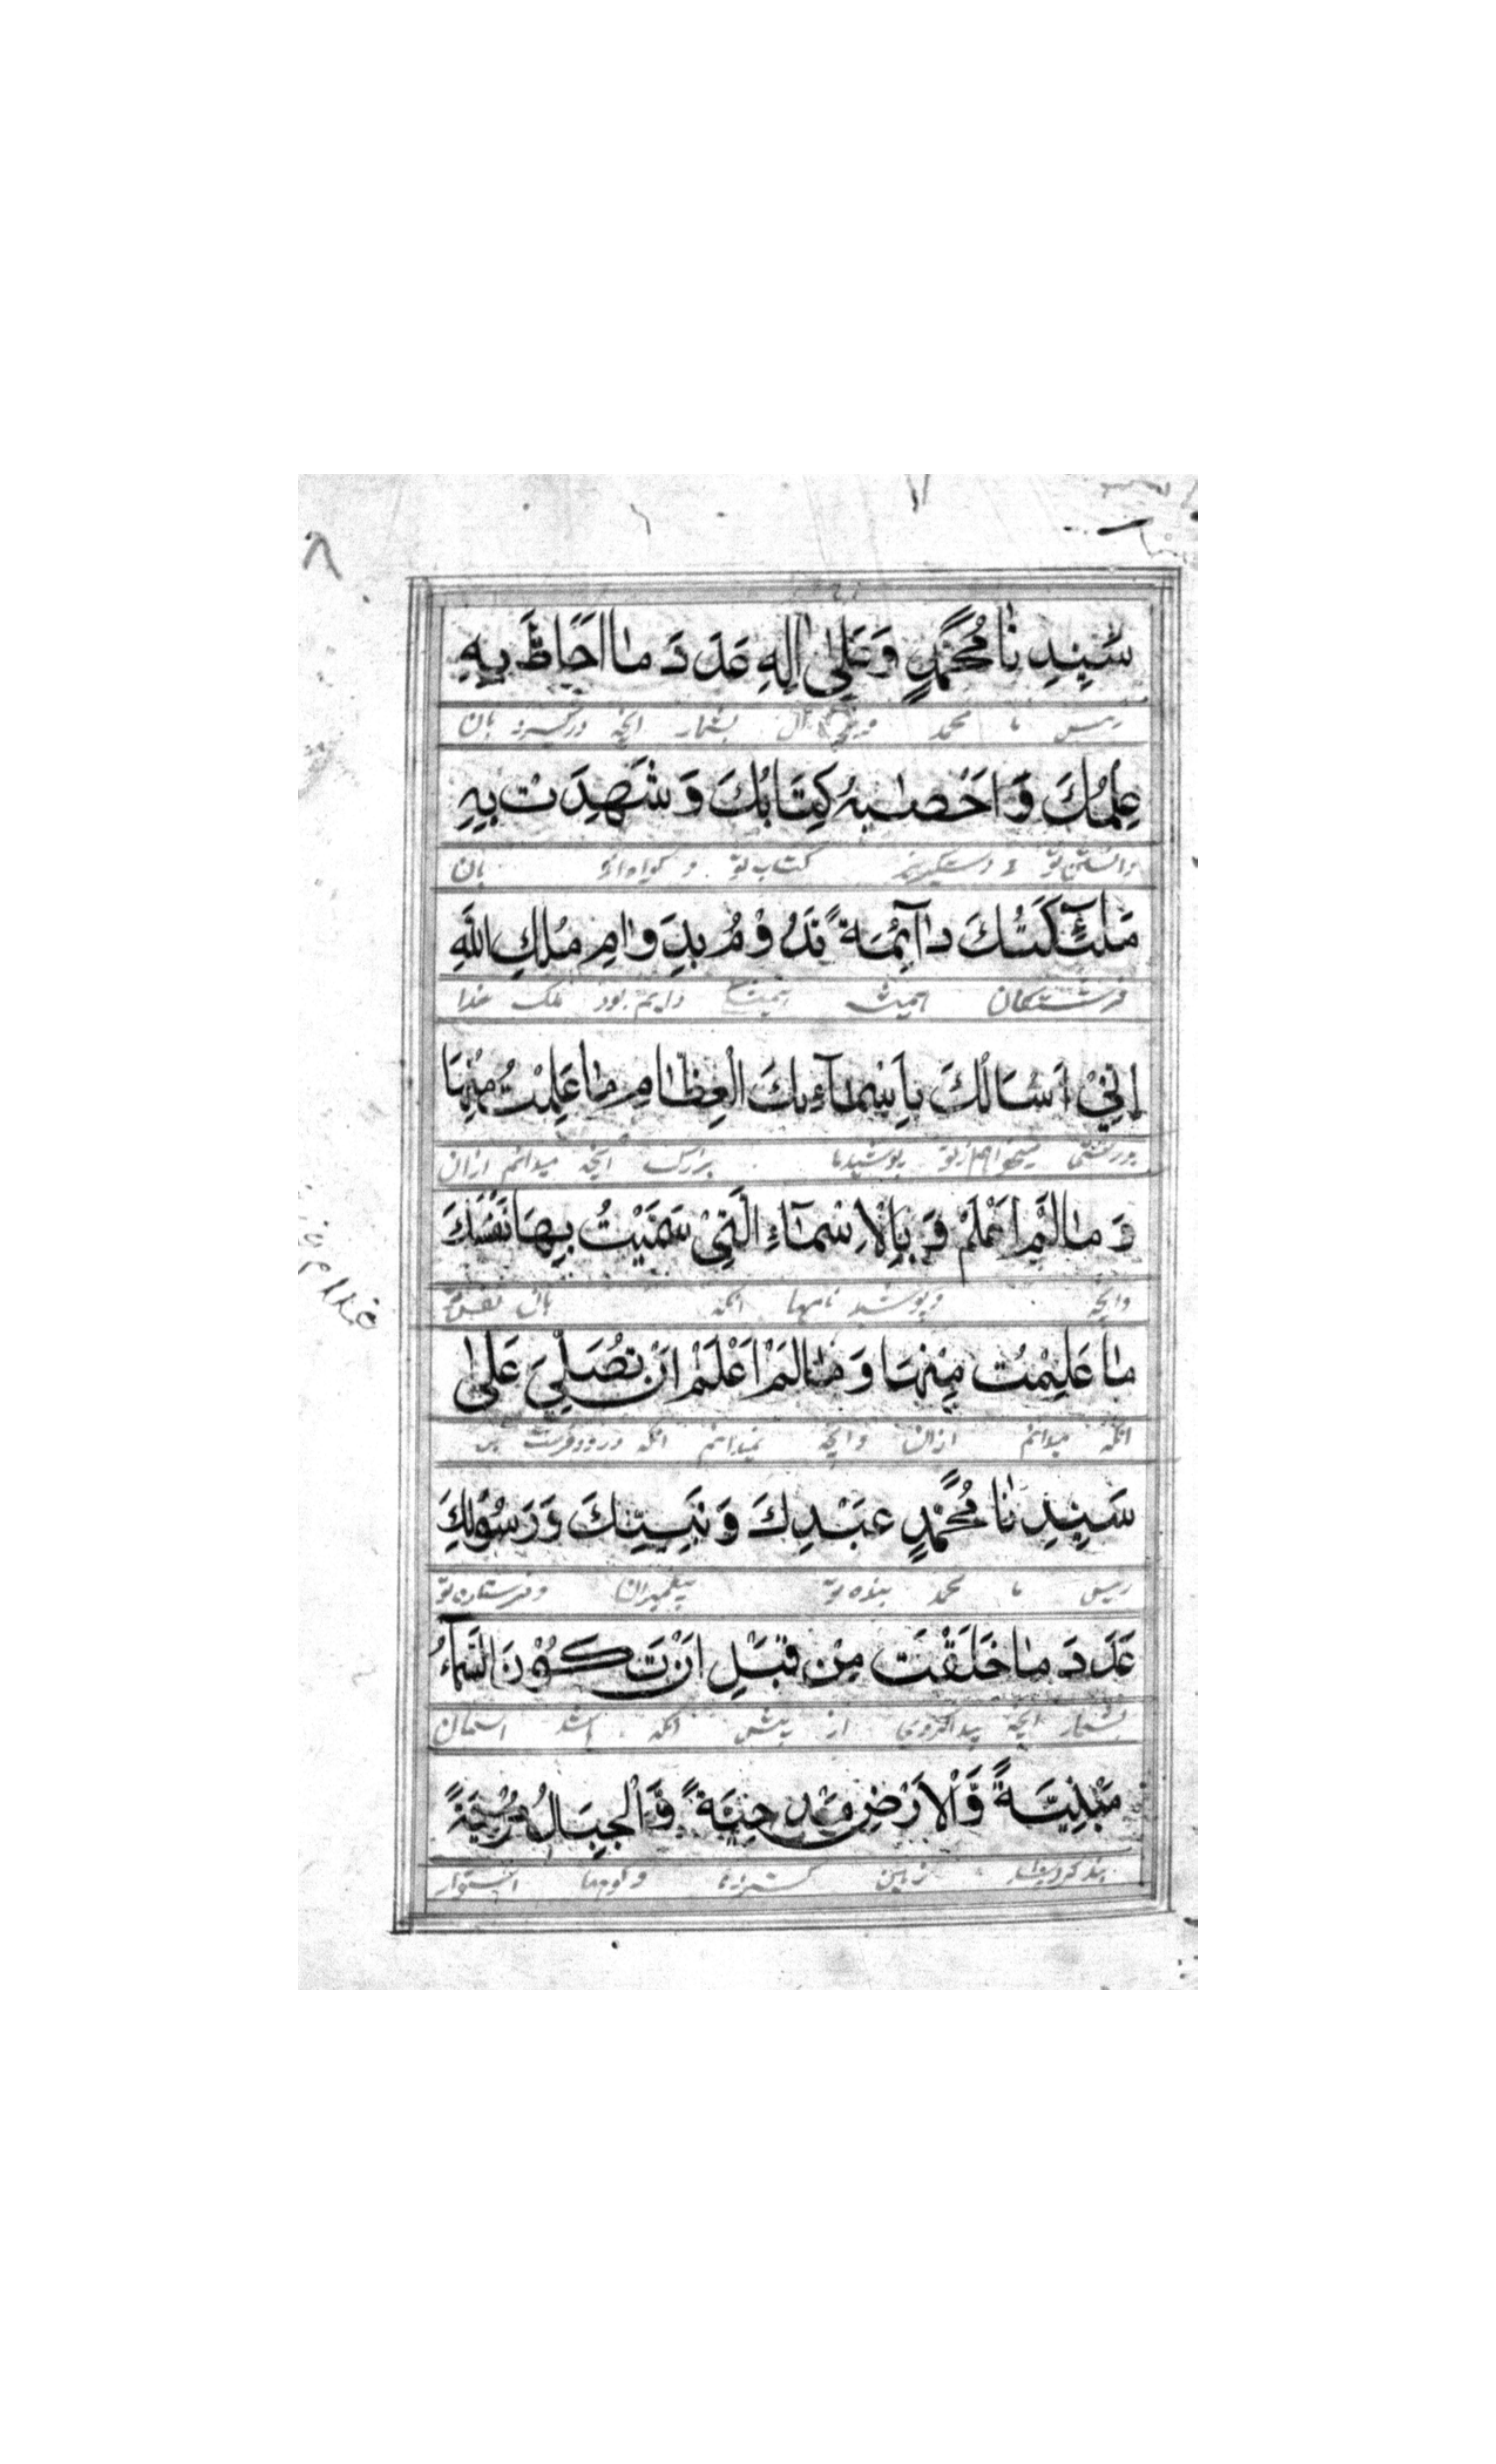 ٨
سَیِّدِنَا مُحَمَّدٍ وَعَلٰی اٰلِهٖ عَدَدَ مَا اَحَاطَ بِهٖ
رئیس ما محمد و بر آل بشمار آنچه درگیرد بان
عِلْمُكَ وَاَحْصٰیهُ كِتَابُكَ وَشَهِدَتْ بِهٖ
دانستن تو و كتاب تو و بان
مَلٰٓئِكَتُكَ دَآئِمَةً تَدُوْمُ بِدَوَامِ مُلْكِ اللّٰهِ
فرشتگان همیشه دایم بود ملک خدا
اِنِّیْ اَسْاَلُكَ بِاَسْمَآءِكَ الْعِظَامِ مَا عَلِمْتُ مِنْهَا
بدرستی میخواهم از تو بزرگ آنچه میدانم ازان
وَمَا لَمْ اَعْلَمْ وَبِالْاَسْمَآءِ الَّتِیْ سَمَّیْتَ بِهَا نَفْسَكَ
وانچه نامها آنکه بان نفس
مَا عَلِمْتُ مِنْهَا وَمَا لَمْ اَعْلَمْ اَنْ تُصَلِّیَ عَلٰی
آنکه میدانم ازان وانچه نمیدانم آنکه درود فرست بر
سَیِّدِنَا مُحَمَّدٍ عَبْدِكَ وَنَبِیِّكَ وَرَسُوْلِكَ
رئیس ما محمد بنده تو پیغمبران و فرستاده تو
عَدَدَ مَا خَلَقْتَ مِنْ قَبْلِ اَنْ تَكُوْنَ السَّمَآءُ
بشمار آنچه پیدا کردی از پیش آنکه باشد آسمان
مَبْنِیَّةً وَّالْاَرْضِ مَدْحِیَّةً وَّالْجِبَالُ مُرْسِیَةً
زمین و کوهها استوار